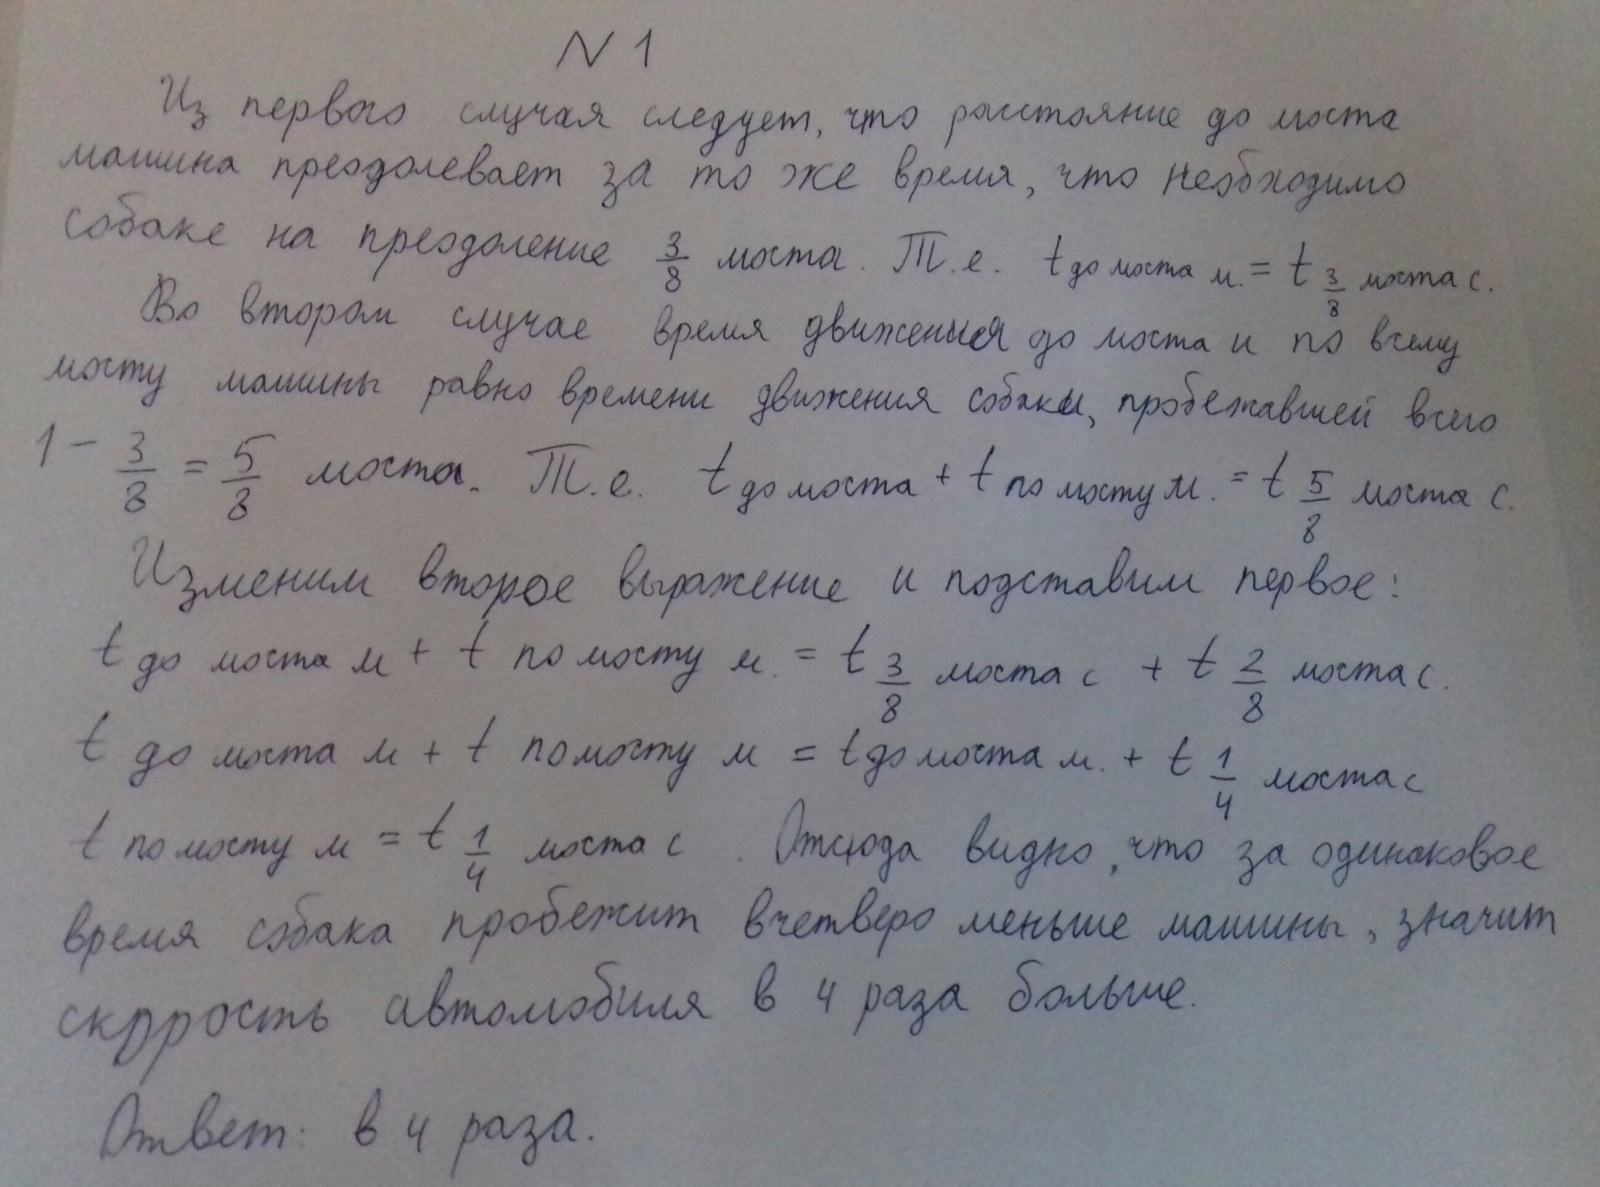 N 1
Из первого случая следует, что расстояние до моста
машина преодолевает за то же время, что необходимо
собаке на преодоление 3/8 моста. Т.е. t до моста м. = t 3/8 моста с.
Во втором случае время движения до моста и по всему
мосту машины равно времени движения собаки, пробежавшей всего
1 - 3/8 = 5/8 моста. Т.е. t до моста + t по мосту м. = t 5/8 моста с.
Изменим второе выражение и подставим первое:
t до моста м + t по мосту м. = t 3/8 моста с + t 2/8 моста с.
t до моста м + t по мосту м = t до моста м. + t 1/4 моста с
t по мосту м = t 1/4 моста с. Отсюда видно, что за одинаковое
время собака пробежит вчетверо меньше машины, значит
скррость автомобиля в 4 раза больше.
Ответ: в 4 раза.